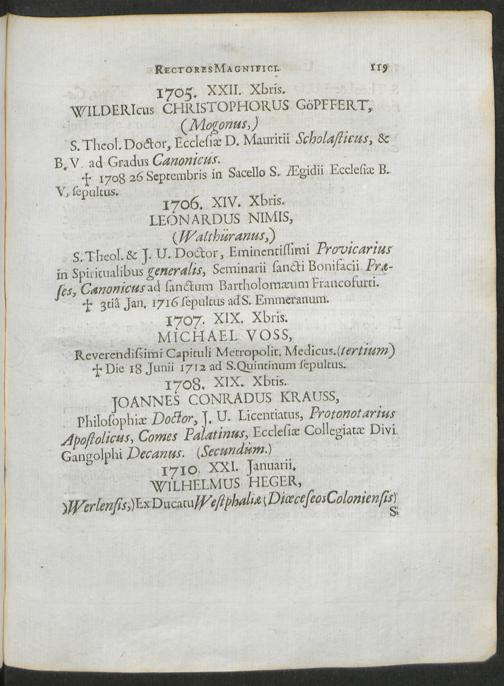 RECTORES MAGNIFICI. 119
1705. XXII. Xbris.
WILDERIcus CHRISTOPHORUS GöPFFERT,
(Mogonus,)
S. Theol. Doctor, Ecclesiæ D. Mauritii Scholaſticus, &
B. V. ad Gradus Canonicus.
✝ 1708 26 Septembris in Sacello S. Ægidii Ecclesiæ B.
V, ſepultus.
1706. XIV. Xbris.
LEONARDUS NIMIS,
(Walthüranus,)
S. Theol. & J. U. Doctor, Eminentiſſimi Provicarius
in Spiritualibus generalis, Seminarii ſancti Bonifacii Præ-
ſes, Canonicus ad ſanctum Bartholomæum Francofurti.
✝ 3tiâ Jan. 1716 ſepultus ad S. Emmeranum.
1707. XIX. Xbris.
MICHAEL VOSS,
Reverendiſſimi Capituli Metropolit. Medicus. (tertium)
✝ Die 18 Junii 1712 ad S. Quintinum ſepultus.
1708. XIX. Xbris.
JOANNES CONRADUS KRAUSS,
Philoſophiæ Doctor, J. U. Licentiatus, Protonotarius
Apoſtolicus, Comes Palatinus, Ecclesiæ Collegiatæ Divi
Gangolphi Decanus. (Secundùm.)
1710. XXI. Januarii.
WILHELMUS HEGER,
)Werlenſis,) Ex Ducatu Weſtphaliæ (Diœceſeos Colonienſis)
S.